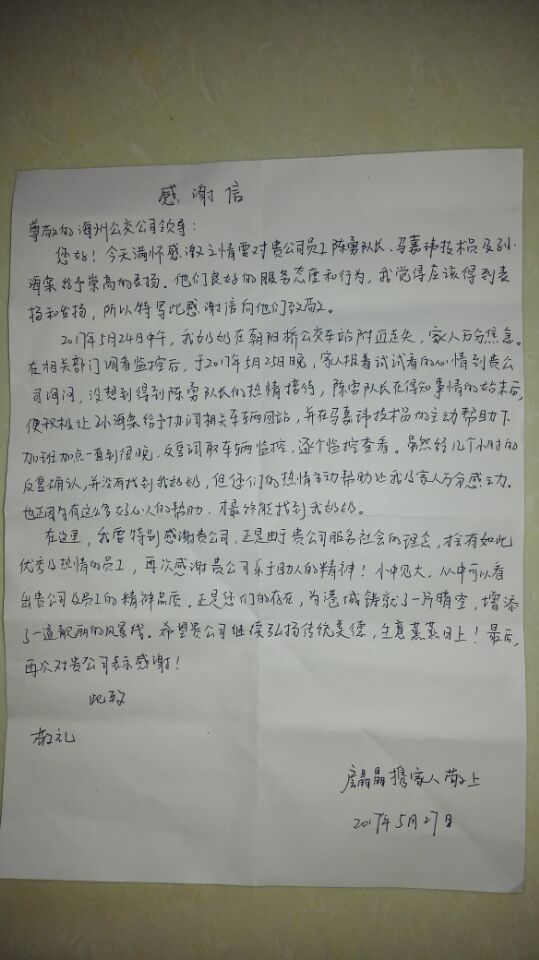 感谢信
尊敬的海州公交公司领导：
您好！今天满怀感激之情要对贵公司员工陈勇队长、马嘉玮技术员及孙
海棠给予崇高的表扬。他们良好的服务态度和行为，我觉得应该得到表
扬和发扬，所以特写此感谢信向他们致敬。
2017年5月24日中午，我奶奶在朝阳桥公交车站附近走失，家人万分焦急。
在相关部门调看监控后，于2017年5月25日晚，家人报着试试看的心情到贵公
司询问，没想到得到陈勇队长的热情接待，陈勇队长在得知事情的始末后，
便积极让孙海棠给予协调相关车辆回站，并在马嘉玮技术员的主动帮助下
加班加点一直到很晚，反复调取车辆监控，逐个监控查看。虽然经几个小时的
反复确认，并没有找到我奶奶，但您们的热情主动帮助让我及家人万分感动。
也正因为有这么多好心人的帮助，才最终能找到我奶奶。
在这里，我要特别感谢贵公司，正是由于贵公司服务社会的理念，拴有如此
优秀及热情的员工，再次感谢贵公司乐于助人的精神！小中见大，从中可以看
出贵公司及员工的精神品质。正是您们的存在，为港城铸就了一片晴空，增添
了一道靓丽的风景线。希望贵公司继续弘扬传统美德，生意蒸蒸日上！最后，
再次对贵公司表示感谢！
此致
敬礼
晶晶携家人敬上
2017年5月27日